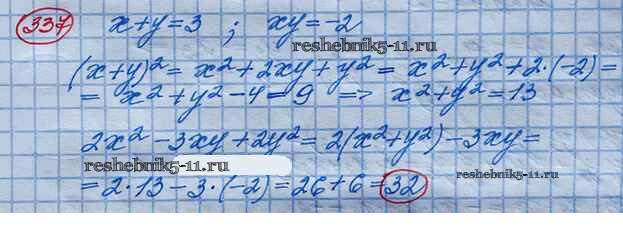 337 x+y=3 ; xy=-2
reshebnik5-11.ru
(x+y)²= x²+2xy+y²= x²+y²+2·(-2)=
= x²+y²-4=9 => x²+y²=13
2x²-3xy+2y²= 2(x²+y²)-3xy=
reshebnik5-11.ru
reshebnik5-11.ru
=2·13-3·(-2)=26+6=32